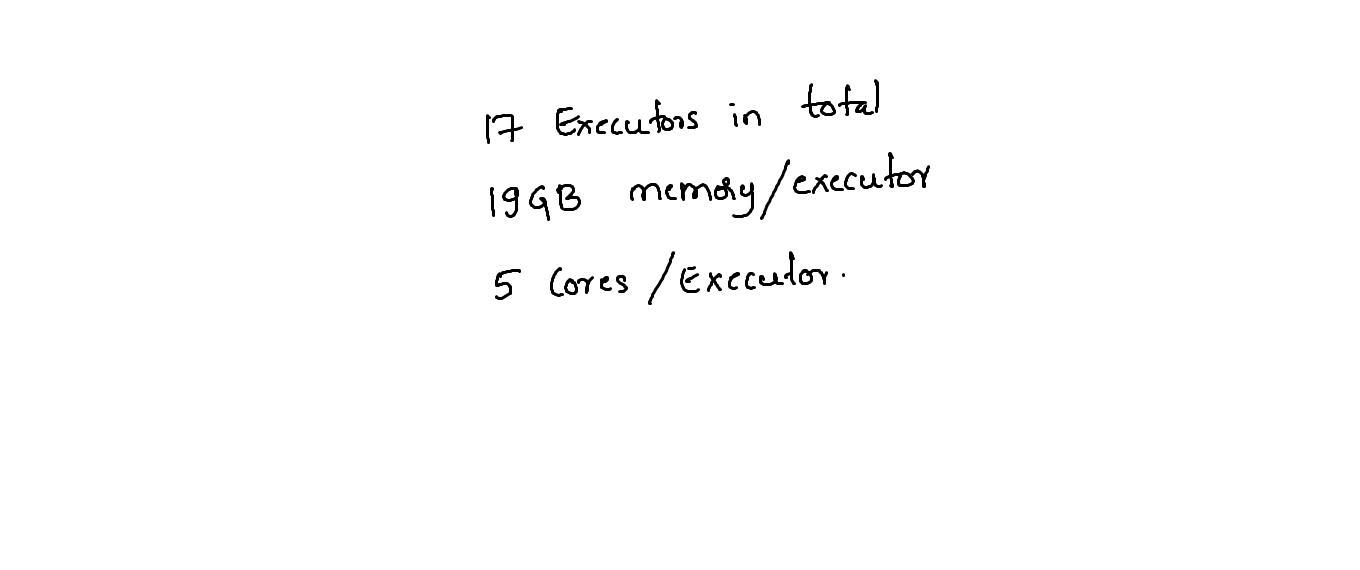 17 Executors in total
19GB memory/executor
5 Cores /Executor.